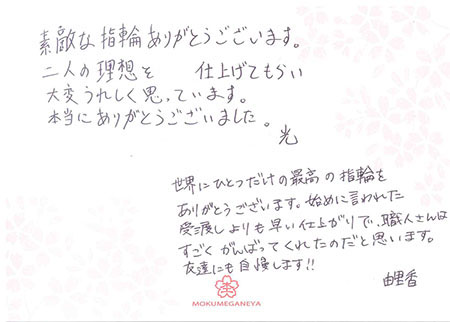 素敵な指輪ありがとうございます。
二人の理想を　仕上げてもらい
大変うれしく思っています。
本当にありがとうございました。
光
世界にひとつだけの最高の指輪を
ありがとうございます。始めに言われた
受渡しよりも早い仕上がりで、職人さんは
すごくがんばってくれたのだと思います。
友達にも自慢します!!
由里香
MOKUMEGANEYA